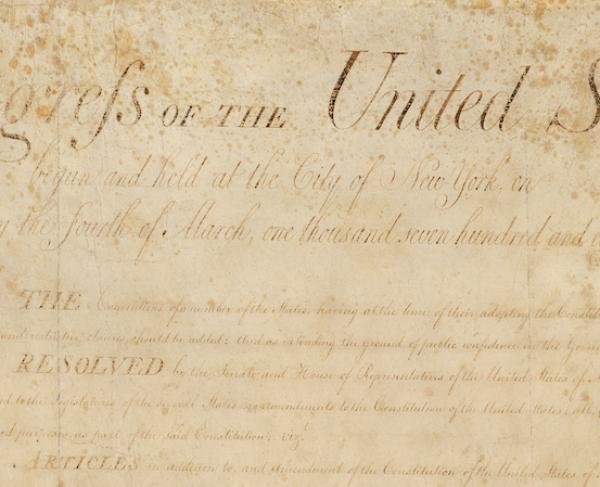 greſs OF THE United S
begun and held at the City of New-York, on
the fourth of March, one thousand seven hundred and
THE Conventions of a number of the States, having at the time of their adopting the Constitu
clauses should be added: And as extending the ground of public confidence in the Govern
RESOLVED by the Senate and House of Representatives of the United States of
to the Legislatures of the several States as amendments to the Constitution of the United States, all
purposes, as part of the said Constitution; viz.
ARTICLES in addition to, and Amendment of the Constitution of the United States of